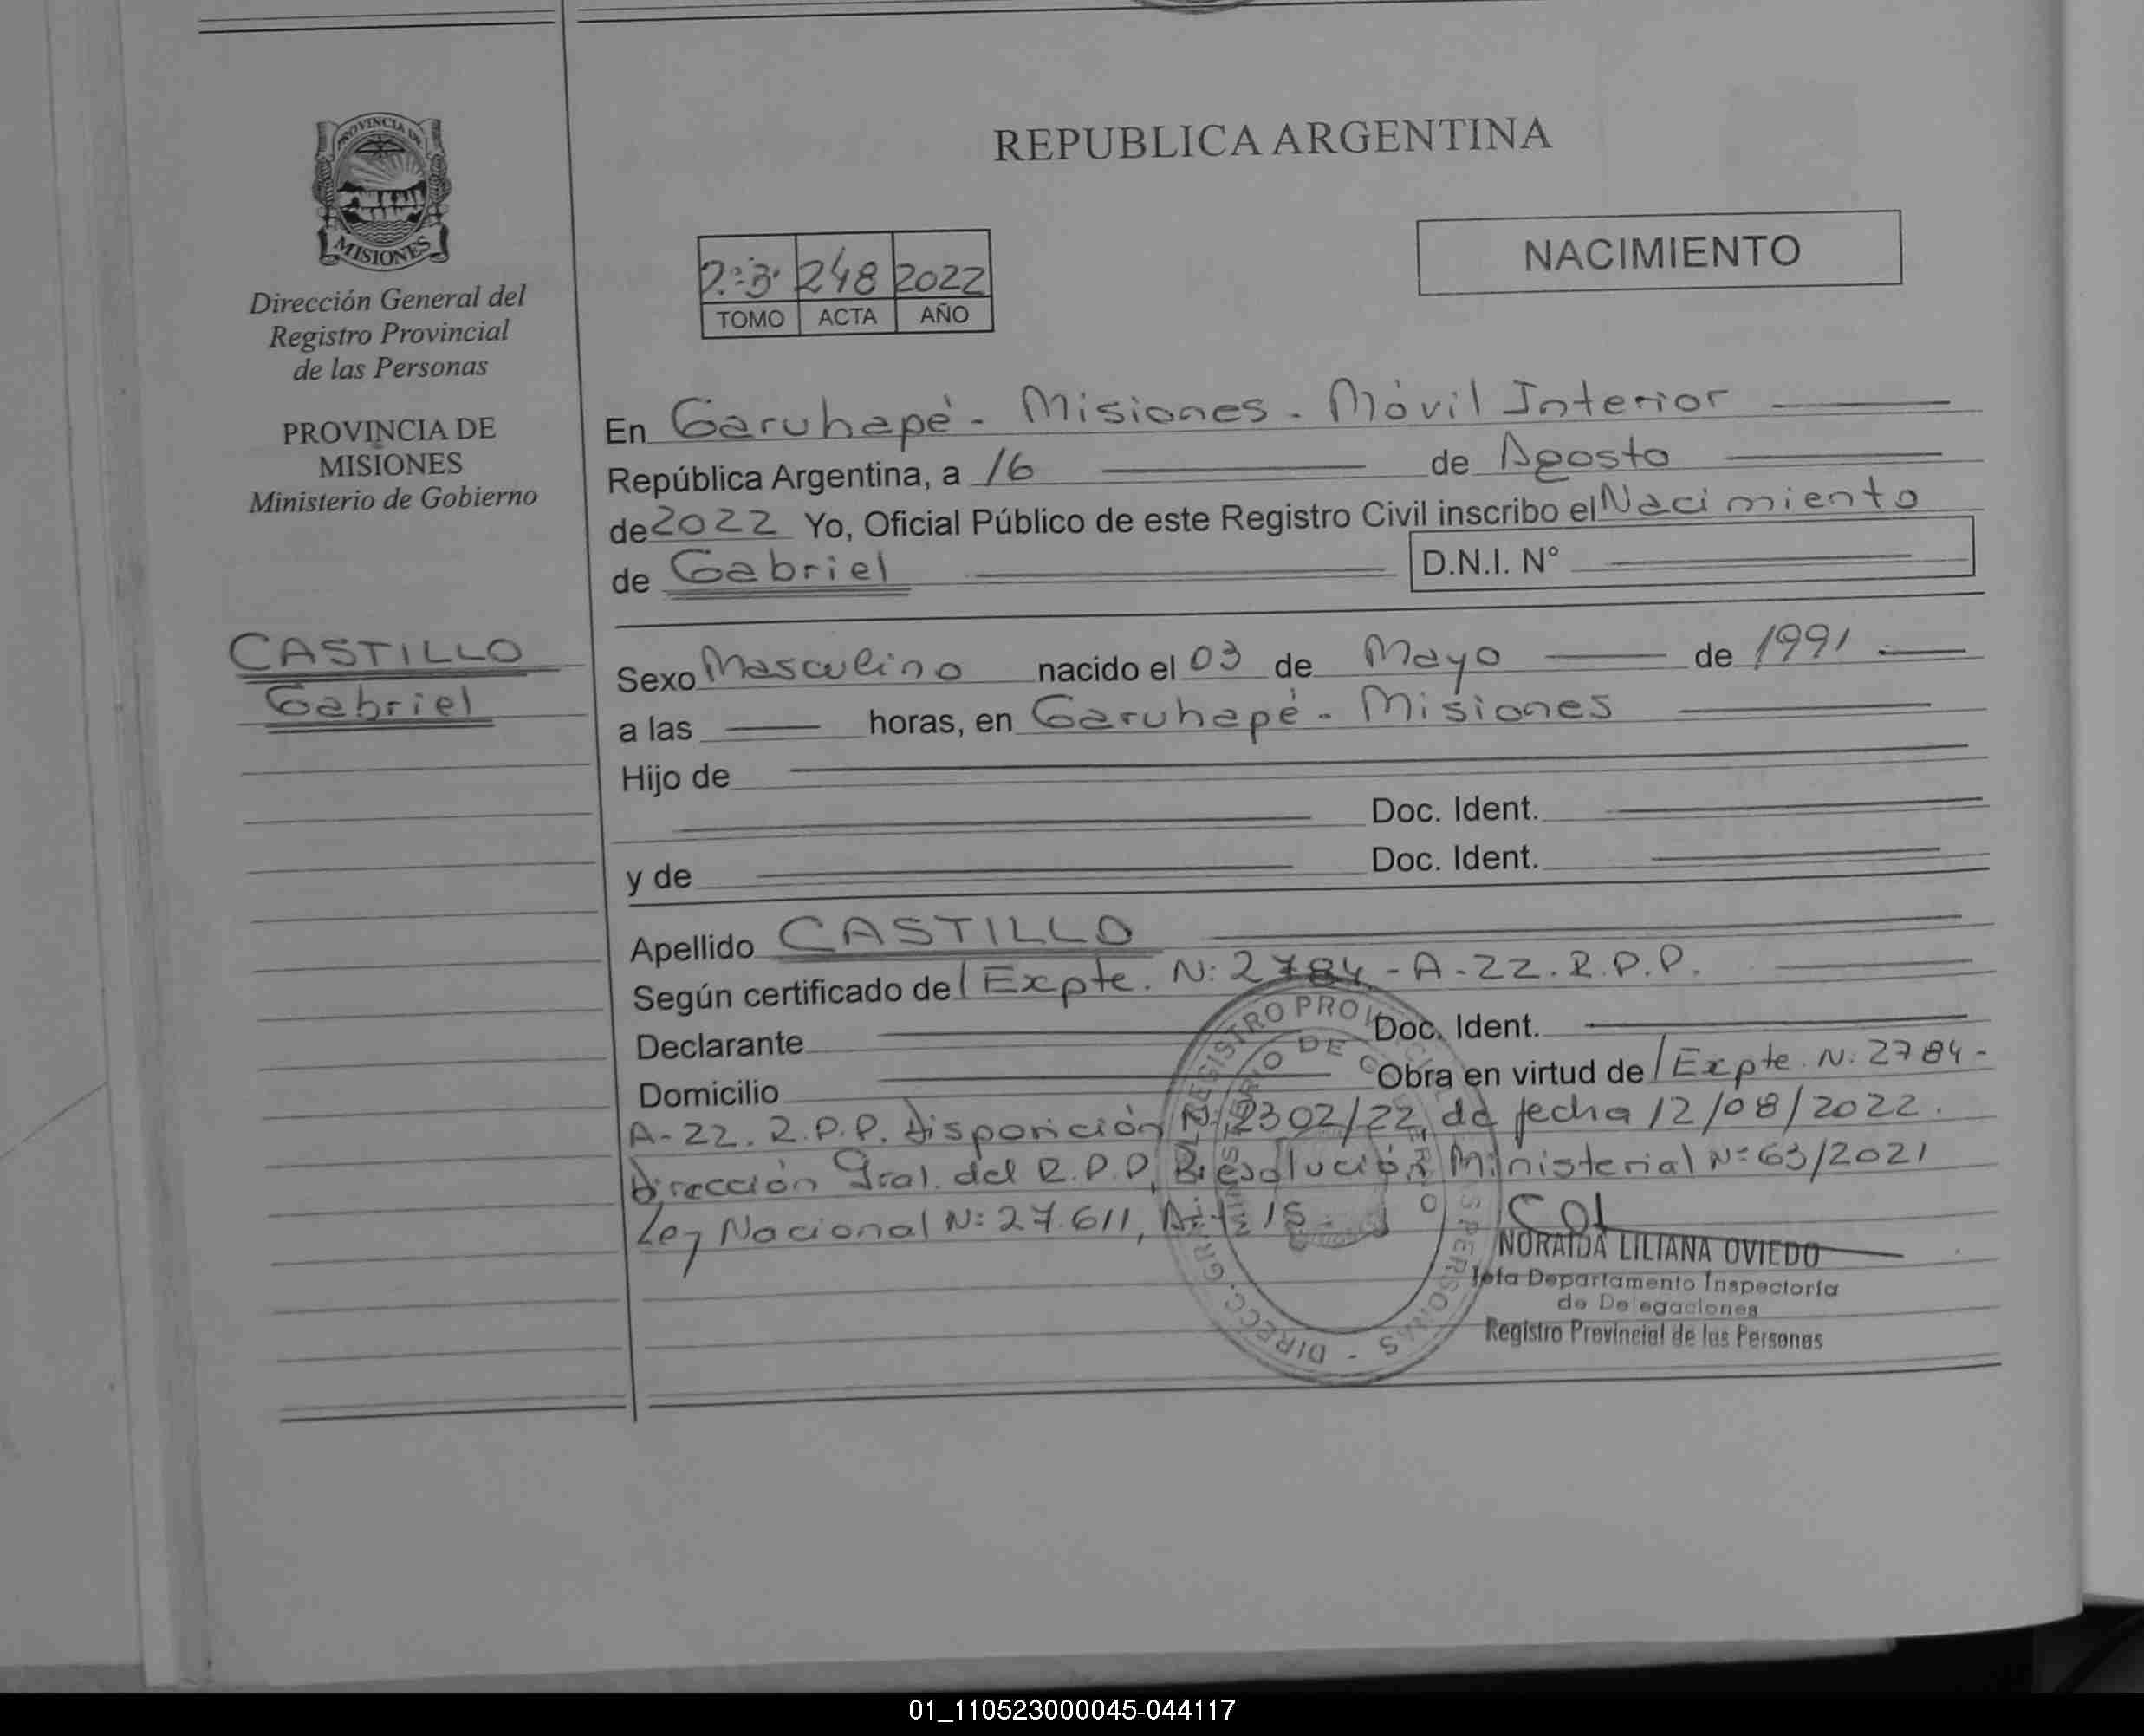 PROVINCIA DE
MISIONES
Dirección General del
Registro Provincial
de las Personas
PROVINCIA DE
MISIONES
Ministerio de Gobierno
CASTILLO
Gabriel
REPUBLICA ARGENTINA
NACIMIENTO
248 2022
TOMO ACTA AÑO
En Garuhapé - Misiones - Móvil Interior
República Argentina, a 16 de Agosto
de 2022 Yo, Oficial Público de este Registro Civil inscribo el Nacimiento
de Gabriel D.N.I. N°
Sexo Masculino nacido el 03 de Mayo de 1991
a las horas, en Garuhapé - Misiones
Hijo de
Doc. Ident.
y de Doc. Ident.
Apellido CASTILLO
Según certificado de l Expte. N: 2784 - A - 22. R.P.P.
Declarante Doc. Ident.
Domicilio Obra en virtud de l Expte. N: 2784 -
A - 22. R.P.P. Disposición N: 2302/22, de fecha 12/08/2022.
Dirección Gral. del R.P.P, Resolución Ministerial N: 63/2021
Ley Nacional N: 27.611, Art: 15.
NORAIDA LILIANA OVIEDO
Jefa Departamento Inspectoría
de Delegaciones
Registro Provincial de las Personas
01_110523000045-044117